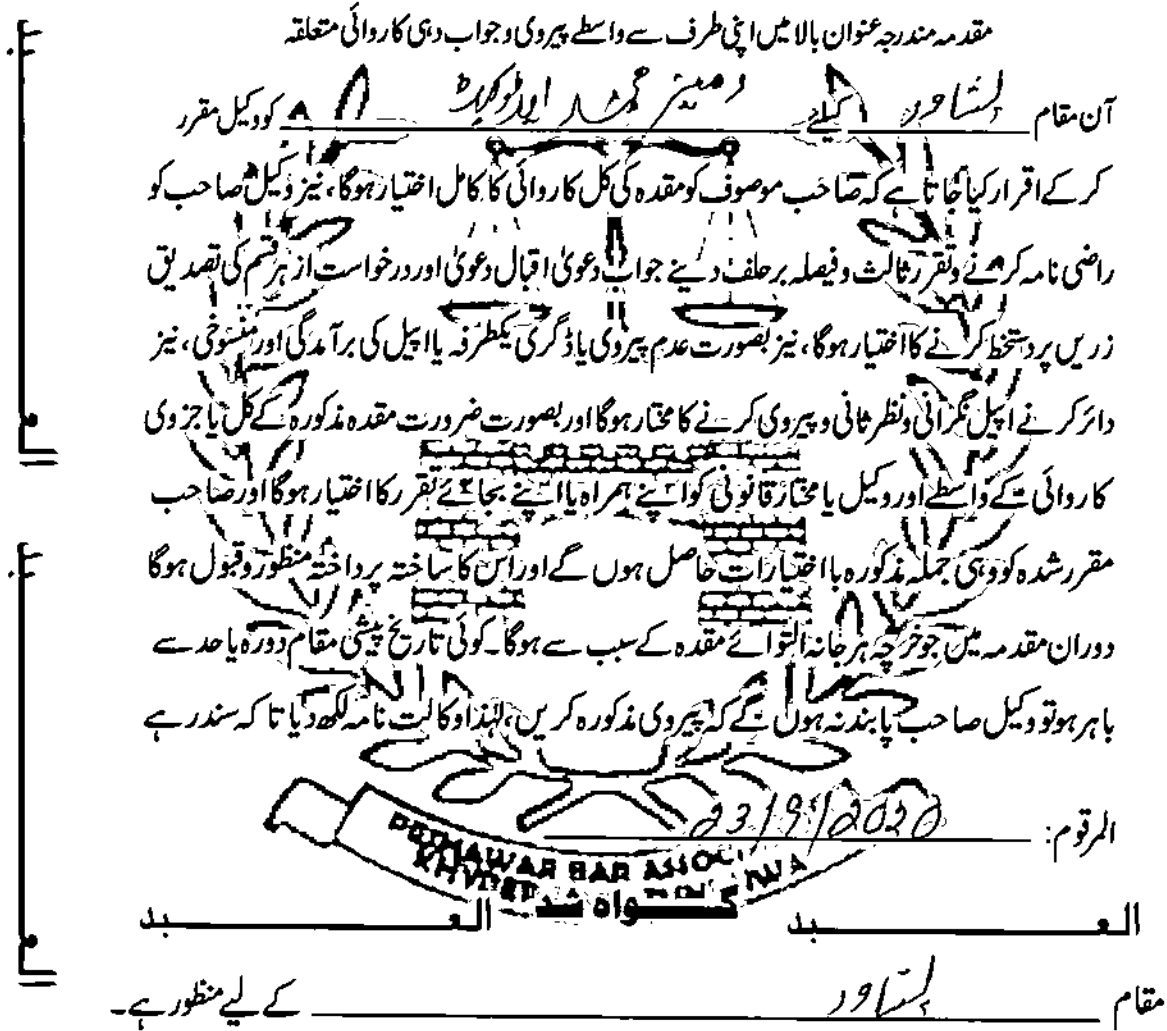 مقدمہ مندرجہ عنوان بالا میں اپنی طرف سے واسطے پیروی و جواب دہی کاروائی متعلقہ
آن مقام پشاور کیلئے ایڈوکیٹ کو وکیل مقرر
کر کے اقرار کیا جاتا ہے کہ صاحب موصوف کو مقدہ کی کل کاروائی کا کامل اختیار ہوگا، نیز وکیل صاحب کو
راضی نامہ کرنے و تقرر ثالث و فیصلہ بر حلف دینے جواب دعویٰ اقبال دعویٰ اور درخواست از ہر قسم کی تصدیق
زریں پر دستخط کرنے کا اختیار ہوگا، نیز بصورت عدم پیروی یا ڈگری یکطرفہ یا اپیل کی برآمدگی اور منسوخی، نیز
دائر کرنے اپیل نگرانی و نظر ثانی و پیروی کرنے کا مختار ہوگا اور بصورت ضرورت مقدہ مذکورہ کے کل یا جزوی
کاروائی کے واسطے اور وکیل یا مختار قانونی کو اپنے ہمراہ یا اپنے بجائے تقرر کا اختیار ہوگا اور صاحب
مقرر شدہ کو وہی جملہ مذکورہ با اختیارات حاصل ہوں گے اور اس کا ساختہ پرداختہ منظور و قبول ہوگا
دوران مقدمہ میں جو خرچہ ہرجانہ التوائے مقدہ کے سبب سے ہوگا۔ کوئی تاریخ پیشی مقام دورہ یا حد سے
باہر ہو تو وکیل صاحب پابند نہ ہوں گے کہ پیروی مذکورہ کریں، لہٰذا وکالت نامہ لکھ دیا تا کہ سندر ہے
المرقوم: 23/9/2020
PESHAWAR BAR ASSOC
العبد گواہ شد العبد
مقام پشاور کے لیے منظور ہے۔